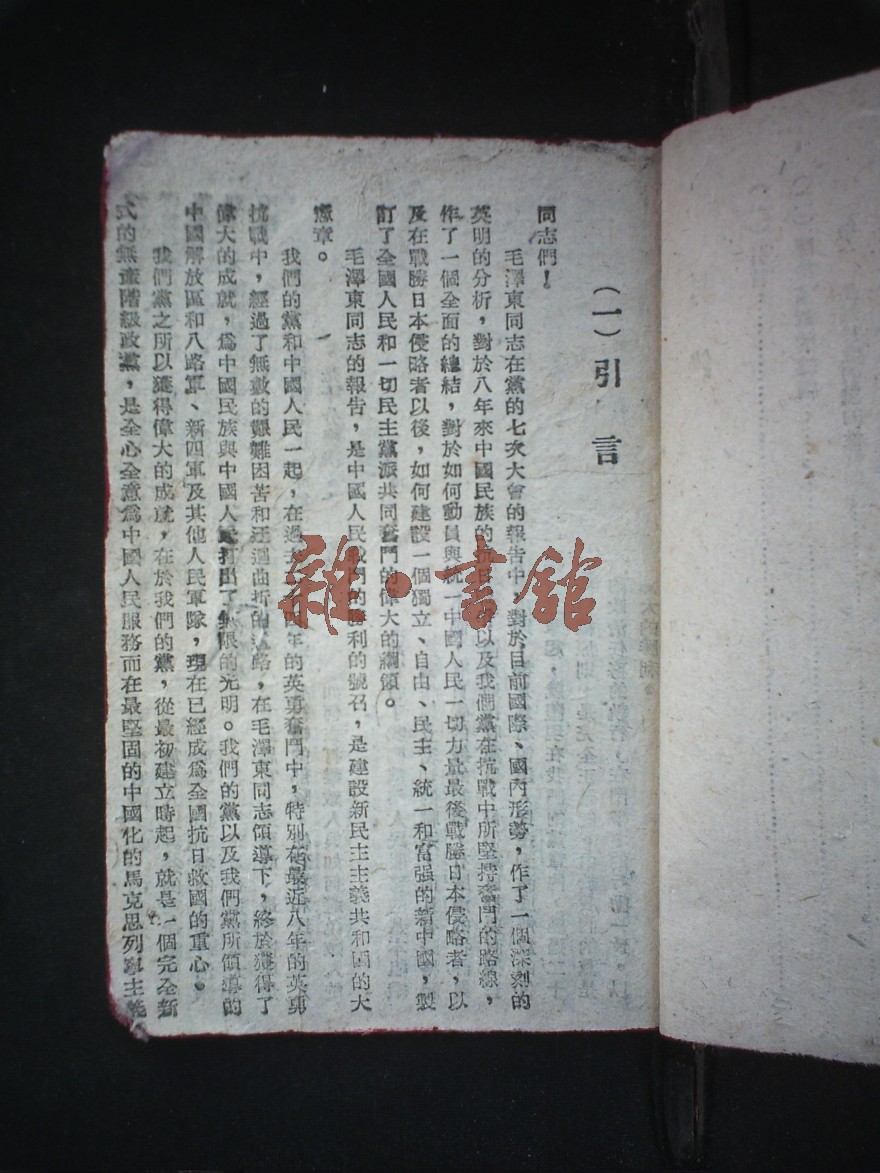 （一）引言
同志們！
毛澤東同志在黨的七次大會的報告中，對於目前國際、國內形勢，作了一個深刻的
英明的分析，對於八年來中國民族的抗日 以及我們黨在抗戰中所堅持奮鬥的路線，
作了一個全面的總結，對於如何動員與統一中國人民一切力量最後戰勝日本侵略者，以
及在戰勝日本侵略者以後，如何建設一個獨立、自由、民主、統一和富强的新中國，製
訂了全國人民和一切民主黨派共同奮鬥的偉大的綱領。
毛澤東同志的報告，是中國人民我們的勝利的號召，是建設新民主主義共和國的大
憲章。
我們的黨和中國人民一起，在過去 四年的英勇奮鬥中，特別在最近八年的英勇
抗戰中，經過了無數的艱難困苦和迂迴曲折的道路，在毛澤東同志領導下，終於獲得了
偉大的成就，爲中國民族與中國人民打出了無限的光明。我們的黨以及我們黨所領導的
中國解放區和八路軍、新四軍及其他人民軍隊，現在已經成爲全國抗日救國的重心。
我們黨之所以獲得偉大的成就，在於我們的黨，從最初建立時起，就是一個完全新
式的無產階級政黨，是全心全意爲中國人民服務而在最堅固的中國化的馬克思列寧主義
雜·書館